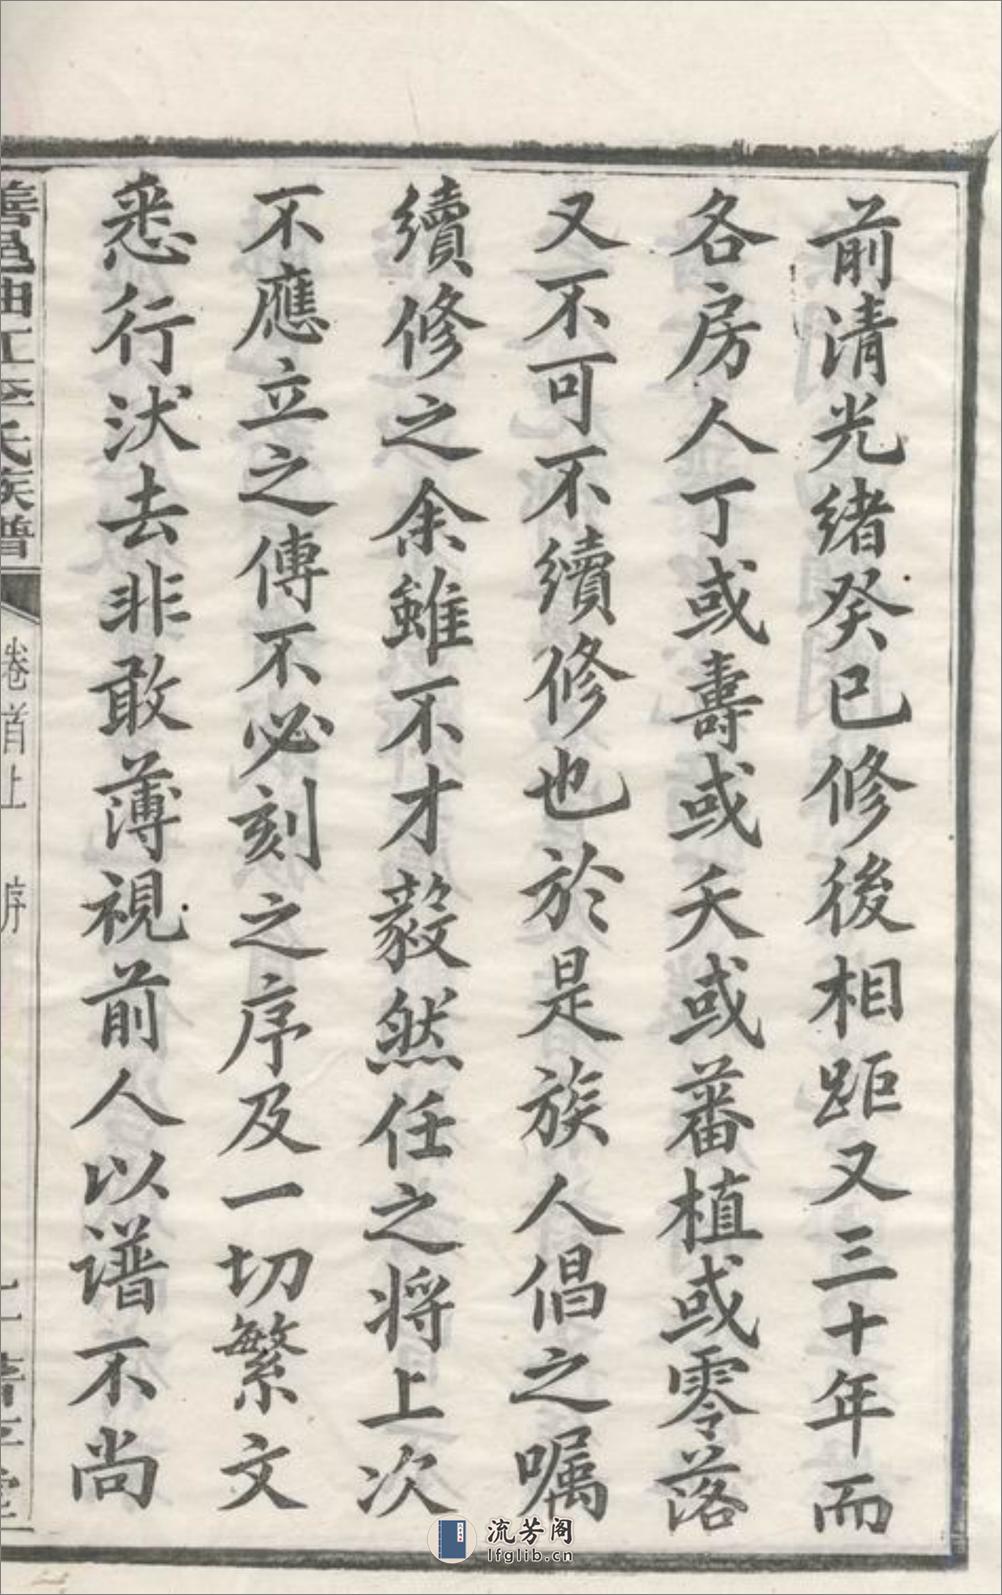 前清光緒癸巳修後相距又三十年而
各房人丁或壽或夭或蕃植或零落
又不可不續修也於是族人倡之嘱
續修之余雖不才毅然任之将上次
不應立之傳不必刻之序及一切繁文
悉行汱去非敢薄視前人以譜不尚
善邑油江李氏族譜
卷首上 序
流芳阁
lfglib.cn